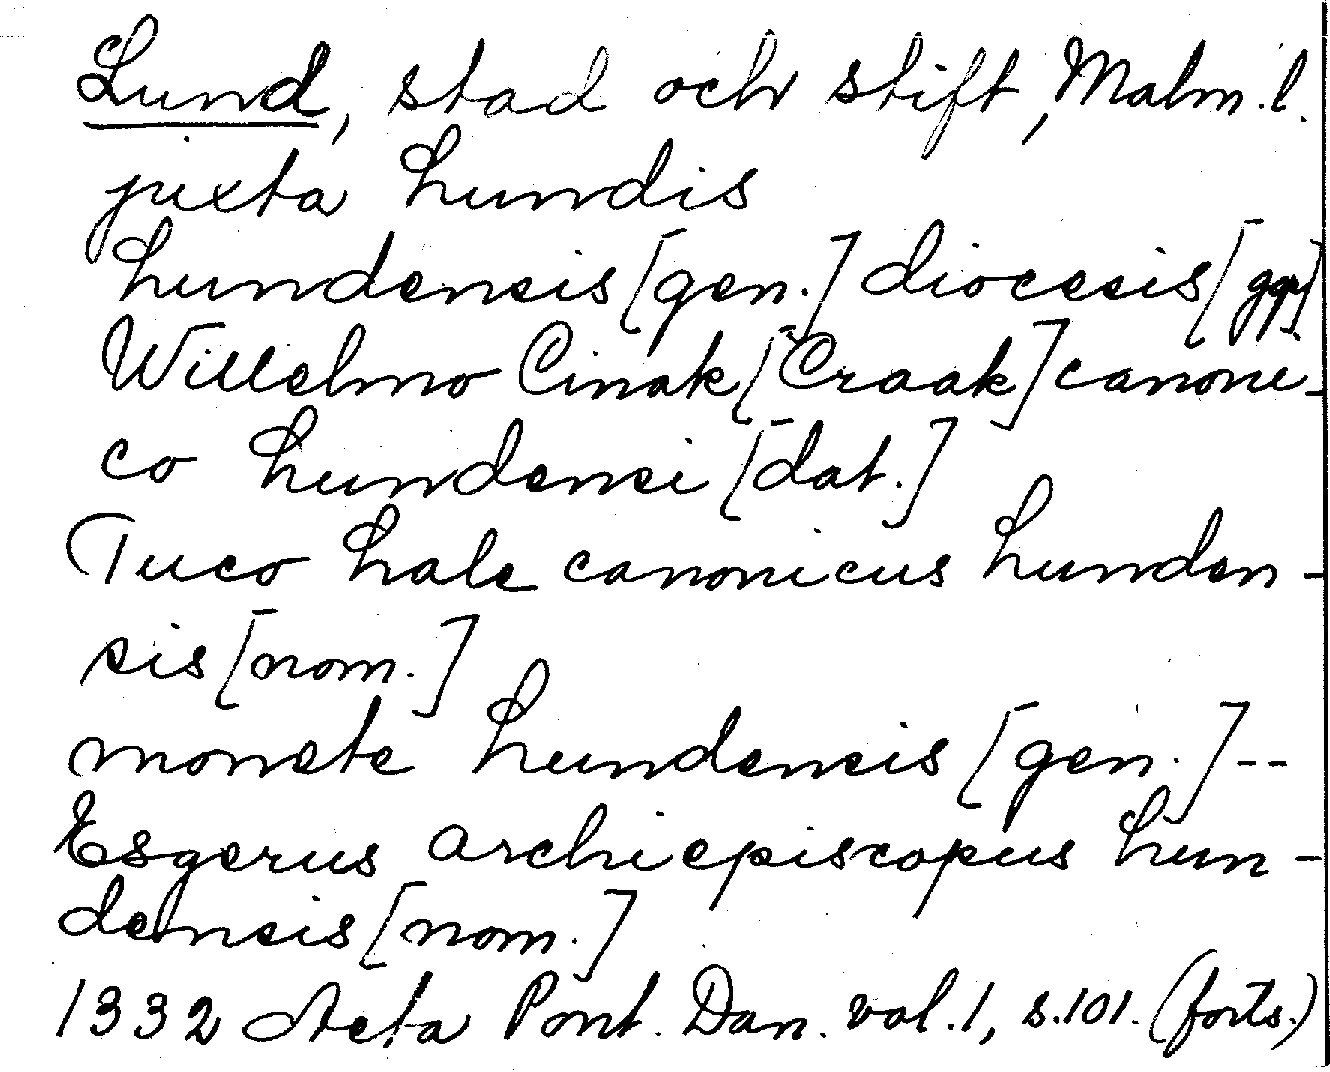 Lund, stad och stift, Malm. l.
juxta Lundis
Lundensis [gen.] diocesis [ggr]
Willelmo Cinak [Craak] canoni-
co Lundensi [dat.]
Tuco Hale canonicus Lunden-
sis [nom.]
monete Lundensis [gen.] --
Esgerus archiepiscopus Lun-
densis [nom.]
1332 Acta Pont. Dan. vol. 1, s. 101. (forts.)